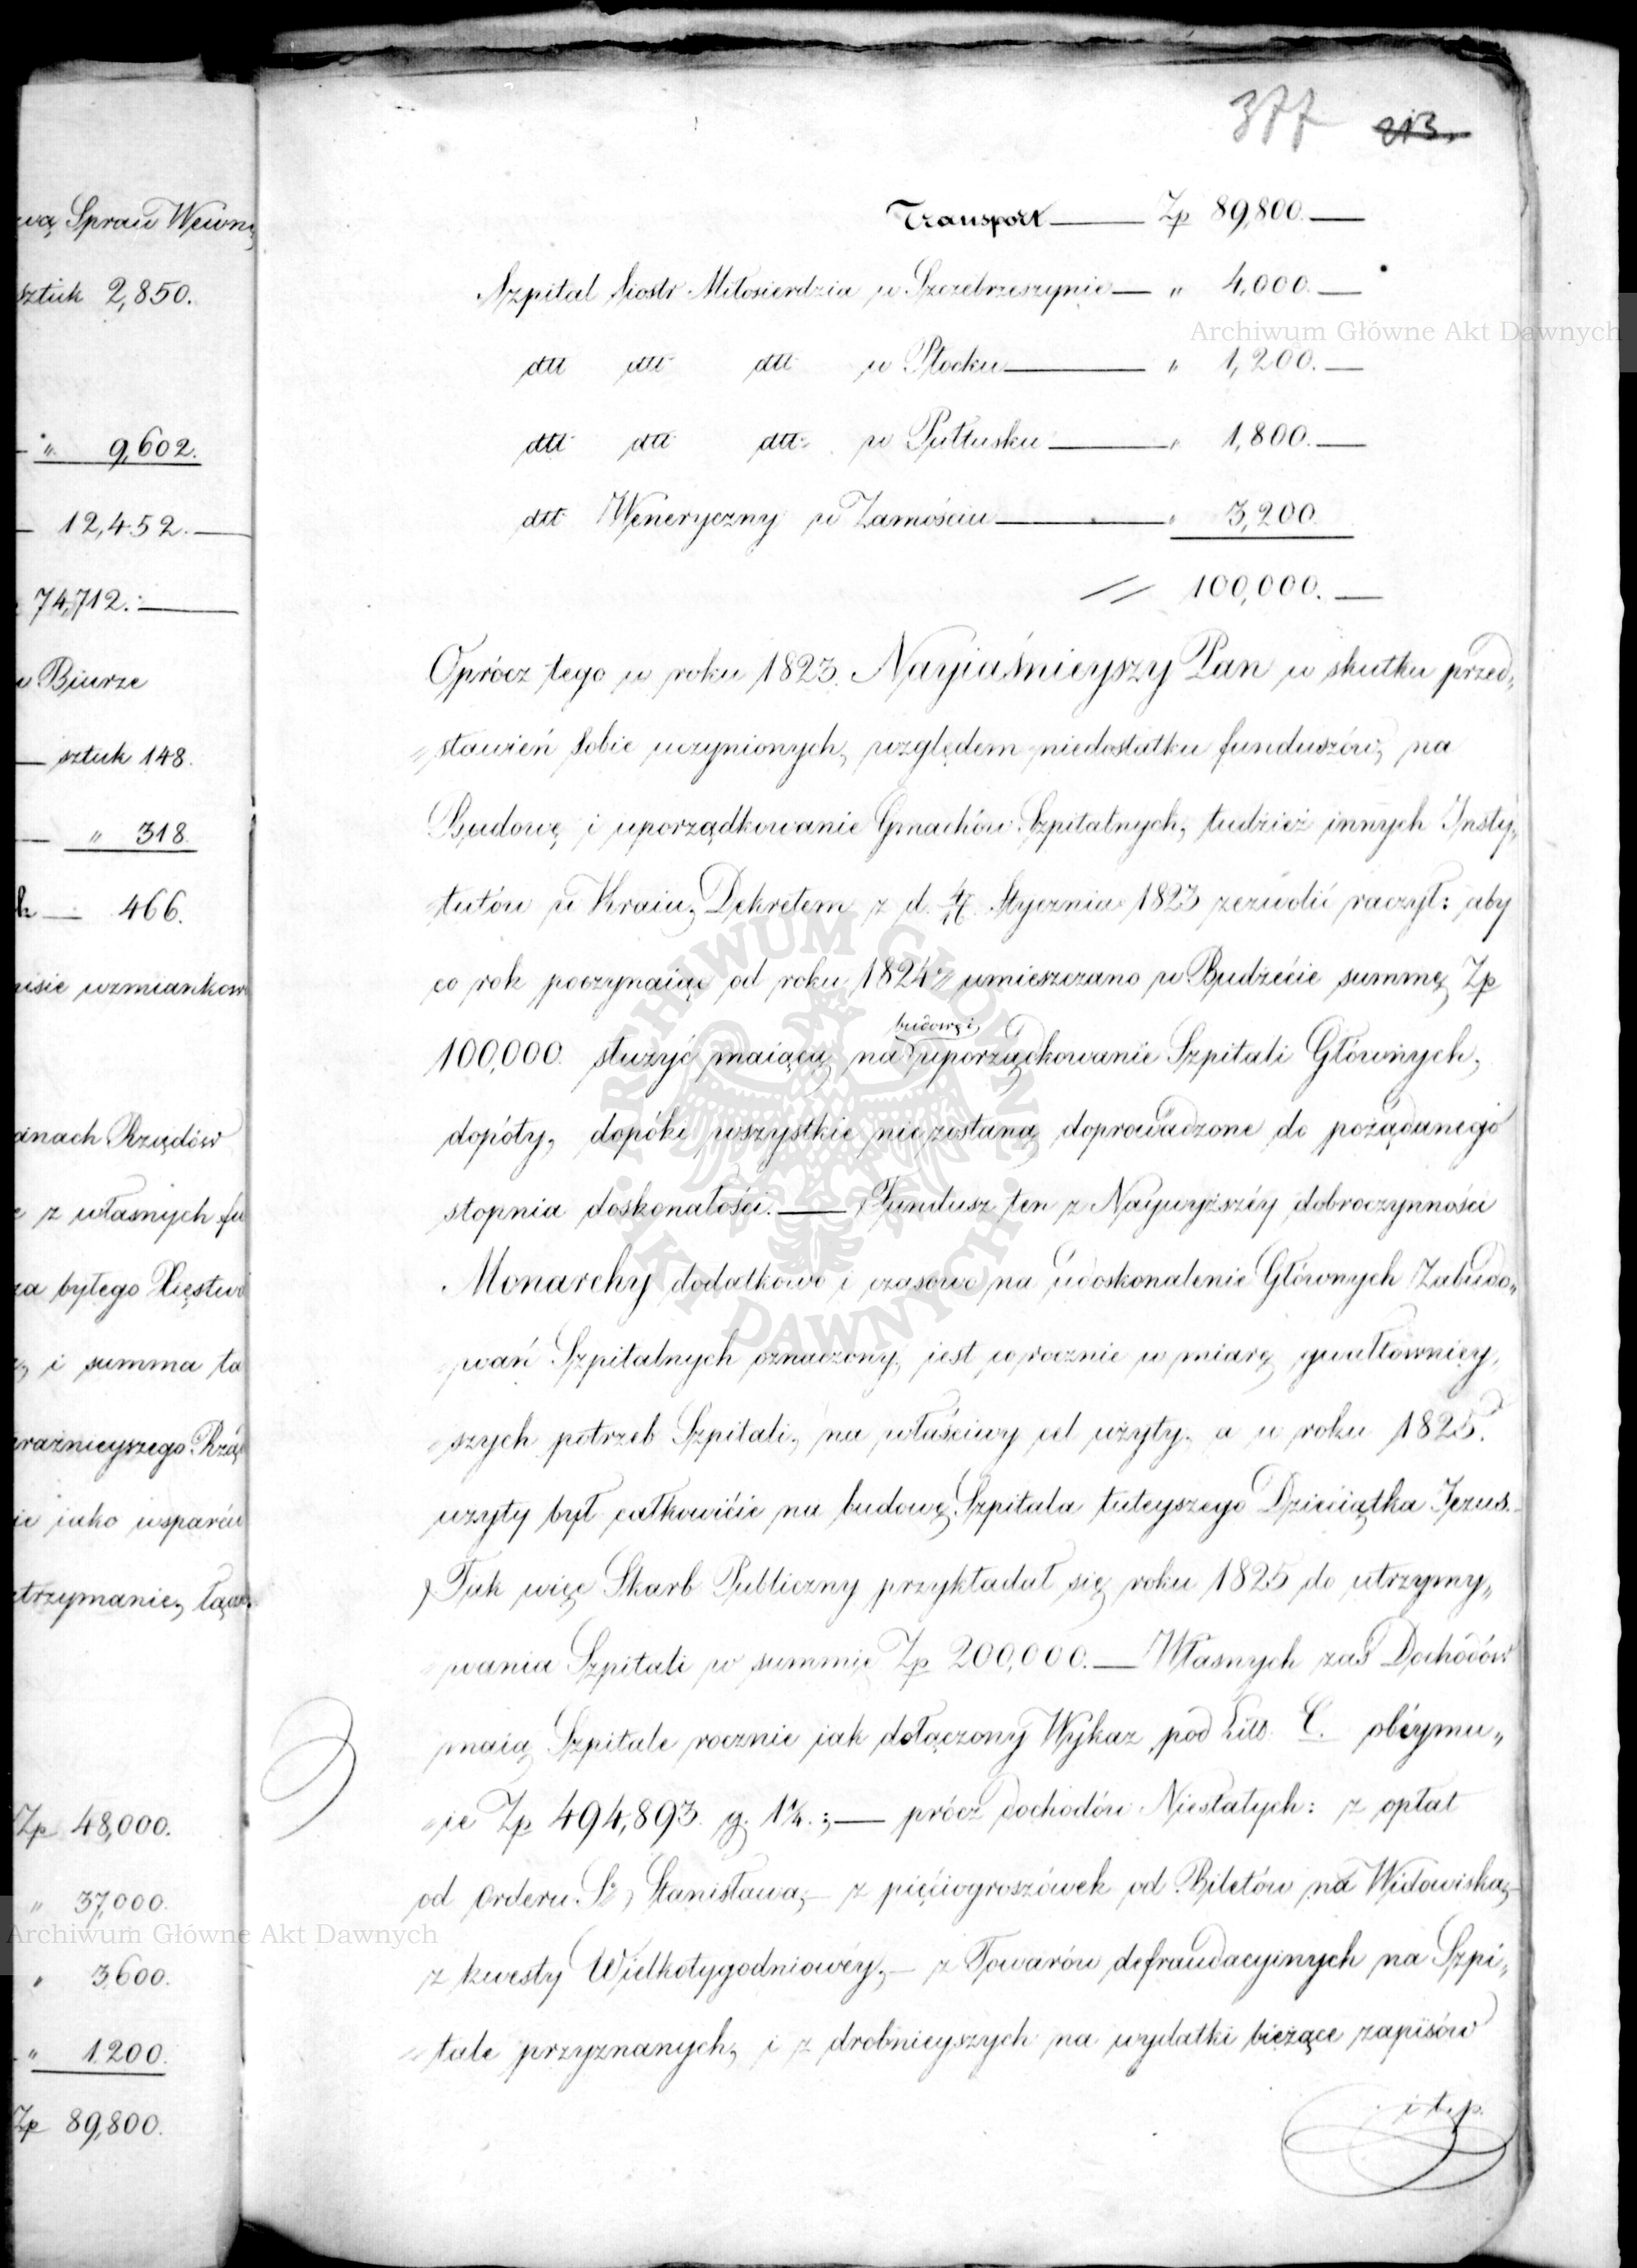 wą Spraw Wewnę
sztuk 2,850.
" 9,602.
12,452.
74,712.
w Biurze
sztuk 148.
" 318.
466.
pisie wzmiankow
anach Rządów
z własnych fu
za byłego Xięstwa
i summa ta
raźnieyszego Rzą
ie iako wsparcie
utrzymanie, łącz
Zp 48,000.
" 37,000.
" 3600.
" 1200.
Zp 89,800.
377 213.
Transport — Zp 89,800. —
Szpital Siostr Miłosierdzia w Szczebrzeszynie — " 4,000. —
dtt dtt dtt w Płocku — " 1,200. —
dtt dtt dtt w Pułtusku — " 1,800. —
dtt Weneryczny w Zamościu — " 3,200.
// 100,000. —
Oprócz tego w roku 1823. Nayiaśnieyszy Pan w skutku przed„
„stawień Sobie uczynionych, względem niedostatku funduszów, na
Budowę i uporządkowanie Gmachów Szpitalnych, tudzież innych Insty„
„tutów w Kraiu, Dekretem z d. Stycznia 1823 zezwolić raczył: aby
co rok poczynaiąc od roku 1824 umieszczano w Budżecie summę Zp
100,000. służyć maiącą na budowę i uporządkowanie Szpitali Głównych,
dopóty, dopóki wszystkie nie zostaną doprowadzone do pożądanego
stopnia doskonałości. — Fundusz ten z Naywyższéy dobroczynności
Monarchy dodatkowo i czasowo na udoskonalenie Głównych Zabudo„
„wań Szpitalnych oznaczony, iest corocznie w miarę gwałtowniey„
„szych potrzeb Szpitali, na właściwy cel użyty, a w roku 1825.
użyty był całkowicie na budowę Szpitala tuteyszego Dzieciątka Jezus.—
Tak więc Skarb Publiczny przykładał się roku 1825 do utrzymy„
„wania Szpitali w summie Zp 200,000. — Własnych zaś Dochodów
maią Szpitale rocznie iak dołączony Wykaz pod Litt. C. obéymu„
„ie Zp 494,893. g. 1¼.; — prócz dochodów Niestałych: z opłat
od Orderu Sº Stanisława, — z pięciogroszówek od Biletów na Widowiska, —
z kwesty Wielkotygodniowéy, — z Towarów defraudacyinych na Szpi„
„tale przyznanych, i z drobnieyszych na wydatki bieżące zapisów
i t. p.
Archiwum Główne Akt Dawnych
Archiwum Główne Akt Dawnych
ARCHIWUM GŁÓWNE AKT DAWNYCH